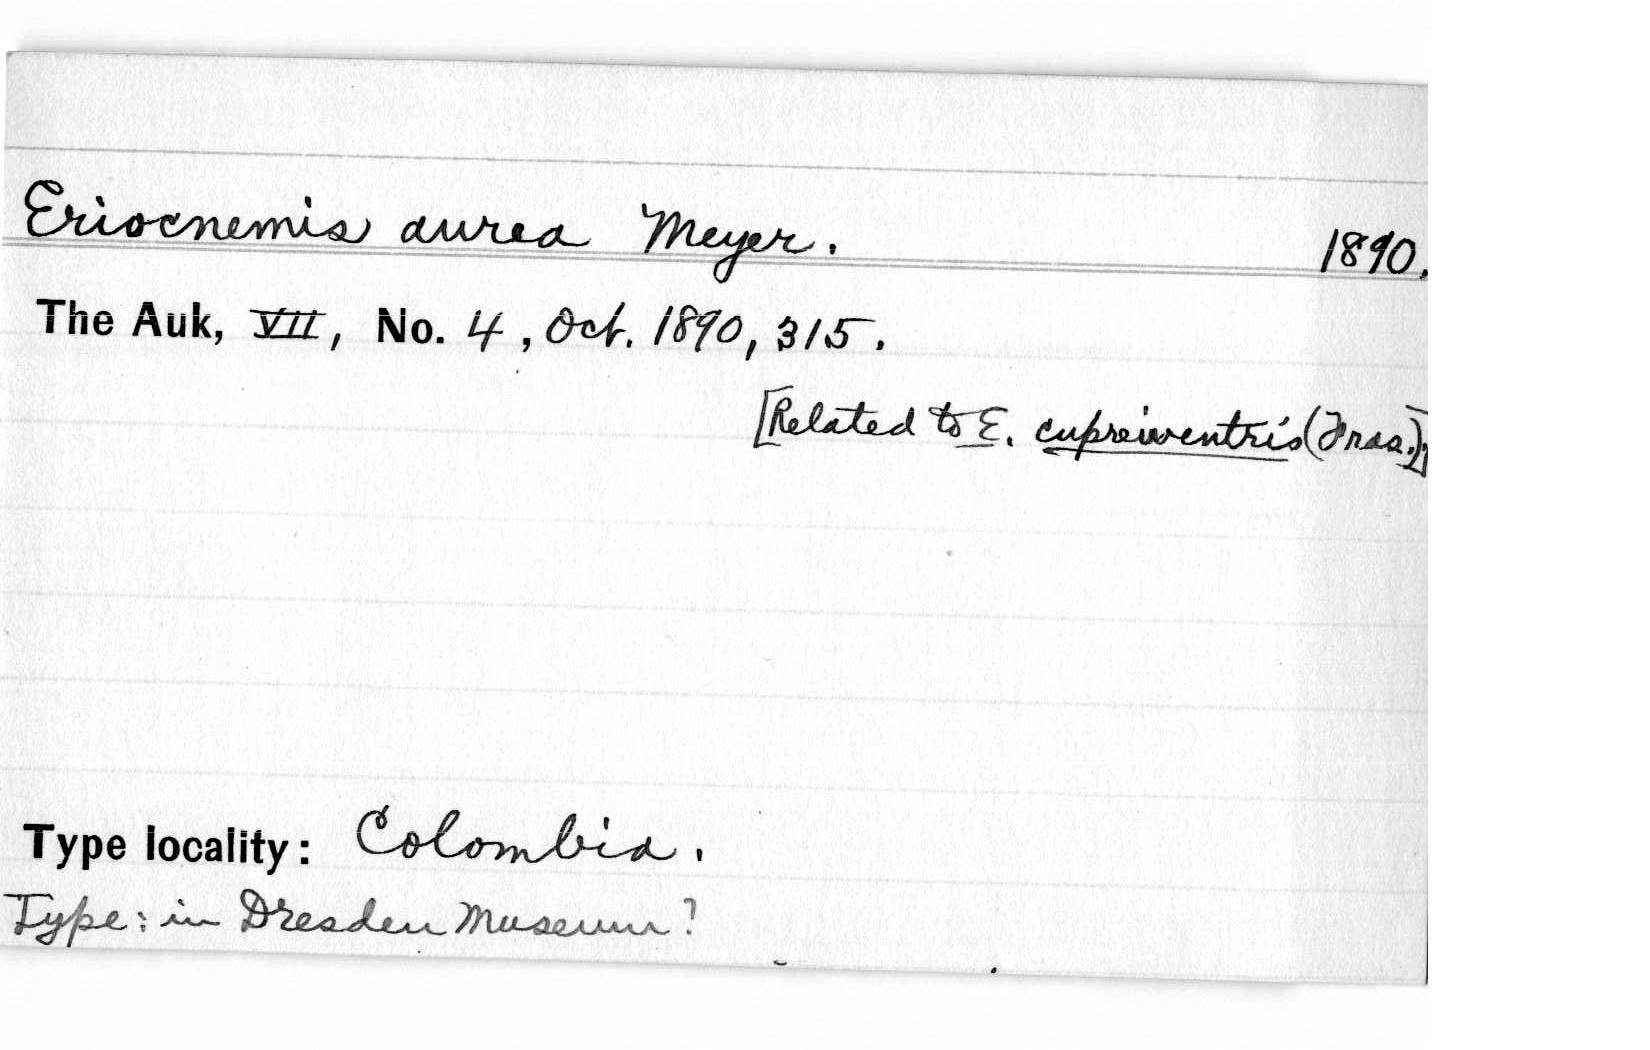 Eriocnemis aurea Meyer. 1890.
The Auk, VII, No. 4, Oct. 1890, 315.
[Related to E. cupreiventris (Fras.)]
Type locality: Colombia.
Type: in Dresden Museum?